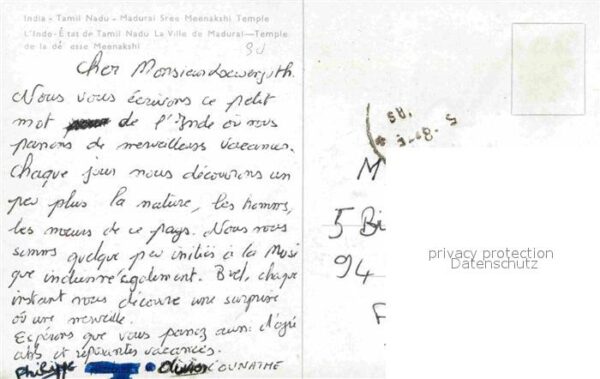 India - Tamil Nadu - Madurai Sree Meenakshi Temple
L'Inde-État de Tamil Nadu La Ville de Madurai—Temple
de la dé esse Meenakshi
30
Cher Monsieur
Nous vous écrivons ce petit
mot de l'Inde où nous
passons de merveilleuses vacances.
Chaque jour nous découvrons un
peu plus la nature, les hommes,
les mœurs de ce pays. Nous nous
sommes quelque peu initiés à la Musi
que indienne également. Bref, chaque
instant nous découvre une surprise
où une merveille.
Espérons que vous passez aussi d'agré
ables et reposantes vacances.
Philippe Olivier COUNATHE
M
5 Bi
94
F
privacy protection
Datenschutz